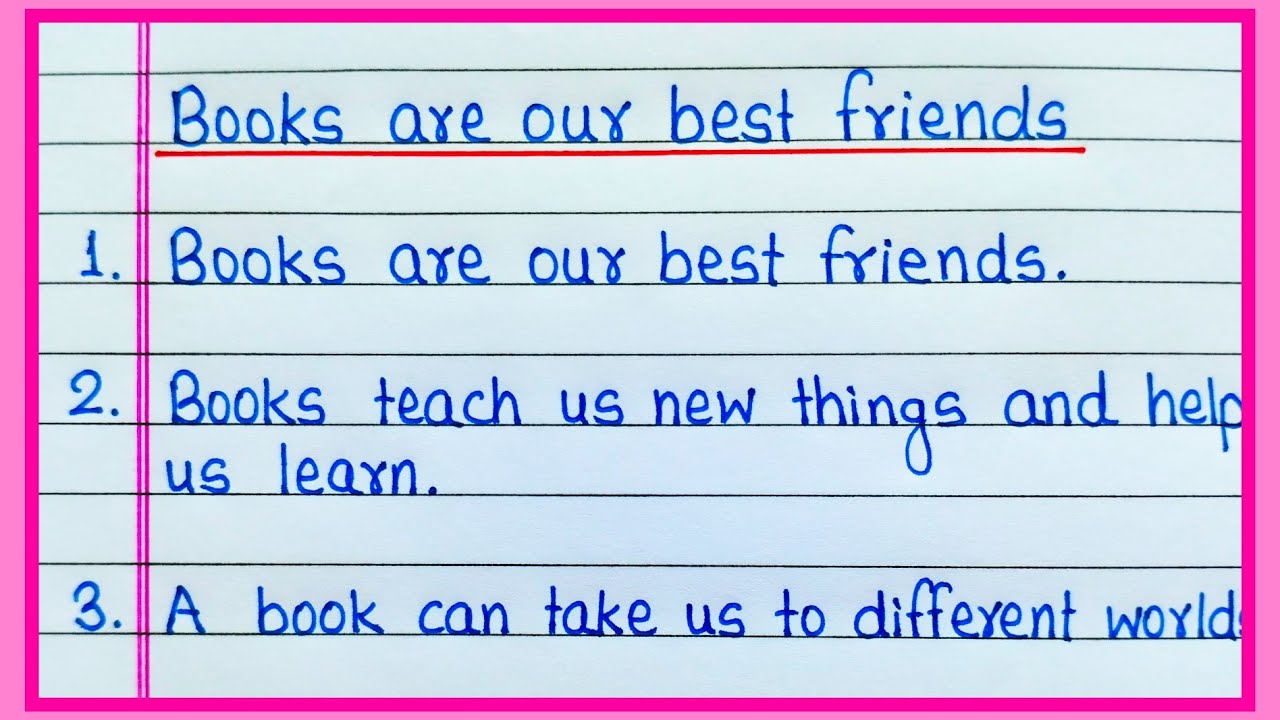 Books are our best friends
1. Books are our best friends.
2. Books teach us new things and help
us learn.
3. A book can take us to different worlds